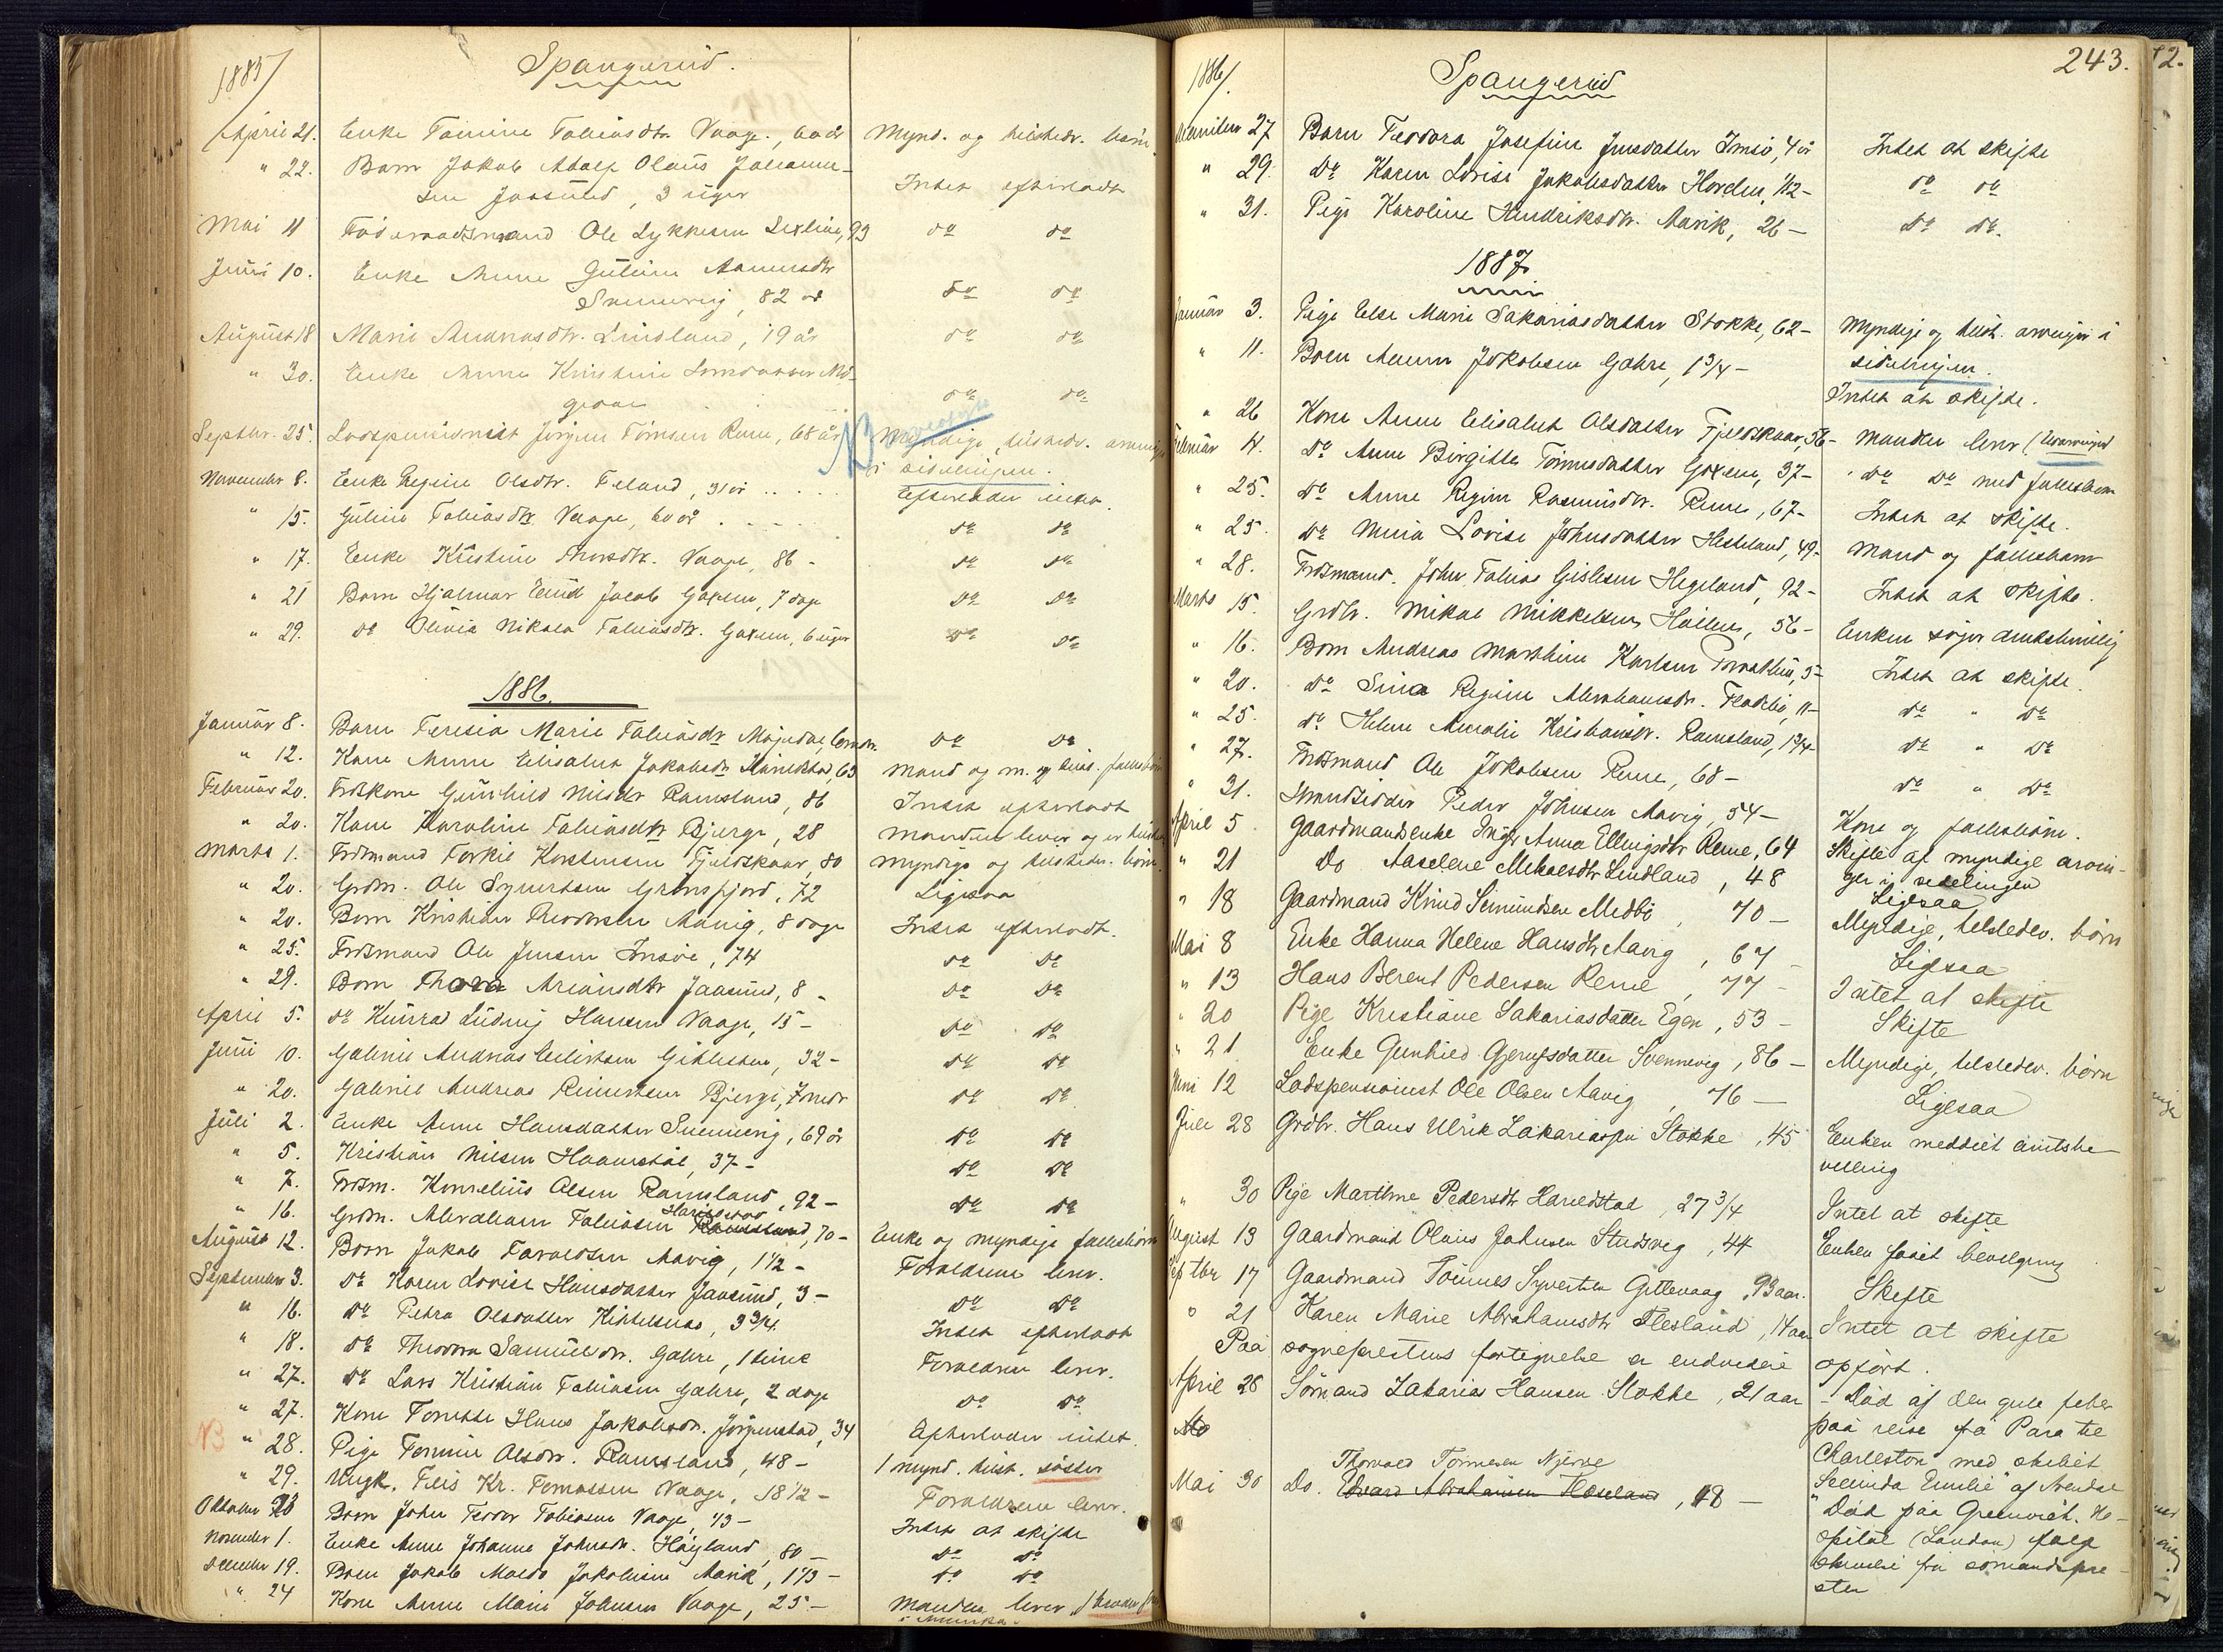 1885/
Spangerëid.
April 21. Enke Tomine Tobiasdtr. Vaage, 60 år Mynd. og tilstedv. børn
" 22. Barn Jakob Adolf Olaus Johanne-
sen Jaasund, 3 uger Intet efterladt
Mai 11 Föderaadsmand Ole Lykkesen 93 do do
Juni 10. Enke Anne Guline Aanensdtr
Svennevig, 82 år do do
August 18 Marie Andreasdtr. Lindland, 19 år do do
" 30. Enke Anne Kristine
do do
Septbr. 25. Lodspensionist Jörgen Tönnesen Reme, 68 år NB Myndige, tilstedv. arvinger
i sidelinjen.
November 8. Enke Regine Olsdtr. Feland, 31 år Efterlader intet.
" 15. Guline Tobiasdtr Vaage, 60 år do do
" 17. Enke Kristine Vaage, 86 - do do
" 21 Barn Hjalmar Emil Jacob Gaxen, 7 dage do do
" 29. do Olivia Nikola Tobiasdtr. Gaxen, 6 uger do do
1886.
Januar 8. Barn Teresia Marie Tobiasdtr 6 mdr. do do
" 12. Kone Anne Elisabet Jakobsdtr Hareldstad, 63 Mand og m. og tilst. fællesbörn
Februar 20. Frdkone Gunhild Nilsdtr Ramsland, 86 Intet efterladt
" 20. Kone Karoline Tobiasdtr Bjerge, 28 Manden lever og er tilstede
Marts 1. Frdmand Torkil Korstensen Fjeldskaar, 80 Myndige og tilstedv. börn
" 20. Grdm. Ole Syvertsen Grönsfjord, 72 Ligesaa
" 20. Barn Kristian Theodorsen Aavig, 8 dage Intet efterladt.
" 25. Frdmand Ole Jensen Imsöe, 74 do do
" 29. Barn Thora Ariansdtr Jaasund, 8 - do do
April 5. do Kunrad Ludvig Hansen Vaage, 15 - do do
Juni 10. Gabriel Andreas 32 - do do
" 20. Gabriel Andreas Reinertsen Bjerge, 7 mdr do do
Juli 2. Enke Anne Hansdatter Svennevig, 69 år do do
" 5. Kristian Nilsen 37 - do do
" 7. Frdm. Kornelius Olsen Ramsland, 92 - do do
" 16. Grdm. Abraham Tobiasen Ramsland Hareldstad, 70 - Enke og myndige fællesbörn
August 12. Barn Jakob Taraldsen Aavig, 1 1/2 - Forældrene lever.
September 3. do Karen Lovise Hansdatter Jaasund, 3 - do do
" 16. do Petra Olsdatter Kirkelnæs, 3 3/4 Intet efterladt
" 18. do Theodora Samuelsdtr. Gahre, 1 time Forældrene lever.
" 27. do Lars Kristian Tobiasen Gahre, 2 dage do do
" 27. Kone Tomette Hans Jakobsdtr. Jörgenstad, 34 Efterlader intet.
NB " 28. Pige Tomine Olsdtr. Ramsland, 48 - 1 mynd. tilst. söster
" 29. Ungk. Nils Kr. Tomassen Vaage, 18 1/2 - Forældrene lever.
Oktober 28 Barn Johan Teodor Tobiasen Vaage, 43 - Intet at skifte
November 1. Enke Anne Johanne Johnsdtr. Höyland, 80 - do do
December 19. Barn Jakob Jakobsen Aavik, 1 1/3 - do do
" 24 Kone Anne Marie Johnsen Vaage, 25 - Manden lever
i Amerika.
1886/
Spangerëid
243.
December 27 Barn Teodora Josefine Jensdatter Imsö, 4 år Intet at skifte
" 29. do Karen Lovise Jakobsdatter 1/12 - do do
" 31. Pige Karoline Hendriksdtr. Aavik, 26 - do do.
1887
Januar 3. Pige Else Marie Sakariasdatter Stokke, 62 - Myndige og tilst. arvinger i
sidelinjen.
" 11. Barn Anton Jakobsen Gahre, 1 3/4 - Intet at skifte.
" 26 Kone Anne Elisabet Olsdatter Fjeldskaar, 56 - Manden lever
Februar 4. do Anne Birgitte Tönnesdatter Gaxen, 37 - do do med fællesbarn
" 25. do Anne Regine Rasmusdtr. Reme, 67 - Intet at skifte.
" 25. do Maria Lovise Johnsdatter Hesteland, 49 - Mand og fællesbarn
" 28. Frdmand. John Tobias Gislesen Hegeland, 92 - Intet at skifte.
Marts 15. Grdbr. Mikal Mikkelsen 56 - Enken søger amtsbevillig
" 16. Barn Andreas Martinius Karlsen 5 - Intet at skifte.
" 20. do Sina Regine Abrahamsdtr. 11 - do " do
" 25. do Helene Amalie Kristiansdtr. Ramsland, 1 3/4 - do " do
" 27. Frdmand Ole Jakobsen Reme, 68 - do " do
" 31. Strandsidder Peder Johnsen Aavig, 54 - Kone og fællesbörn.
April 5 Gaardmandsenke Inger Anna Ellingsdtr Reme, 64 Skifte af myndige arvin-
ger i sidelinjen
" 21 Do Aaselene Mikalsdtr Lindland, 48 Ligesaa
" 18 Gaardmand Knud Semundsen Medbö, 70 - Myndige, tilstedev. børn
Mai 8 Enke Hanna Helene Hansdtr Aavig, 67 - Ligesaa
" 13 Hans Berent Pedersen Reme, 77 - Intet at skifte
" 20 Pige Kristiane Sakariasdatter Egen, 53 - Skifte
" 21 Enke Gunhild Gjerufsdatter Svennevig, 86 - Myndige, tilstedev. børn
Juni 12 Lodspensionist Ole Olsen Aavig, 76 - Ligesaa
Juli 28 Grdbr. Hans Ulrik Zakariasen Stokke, 45 Enken meddelt amtsbe-
villing
" 30 Pige Martine Pedersdtr Hareldstad, 27 3/4 Intet at skifte
August 13 Gaardmand Olaus Johnsen Studsvig, 44 Enken faaet bevilgning
Septbr 17 Gaardmand Tönnes Syvertsen Gitlevaag, 93 aar. Skifte
" 21 Karen Marie Abrahamsdtr Flesland, 14 aar Intet at skifte
Paa sogneprestens fortegnelse er endvidere opført.
April 26 Sömand Zakarias Hansen Stokke, 21 aar - Död af den gule feber
paa reise fra Para til
Charleston med skibet
"Selinda Emilie" af Arendal
Thorvald Tönnesen Njerve
Mai 30 Do. Edvard Abrahamsen Høseland, 18 - Död paa Greenwich Ho-
spital (London) ifølge
skrivelse fra sömandspre-
sten